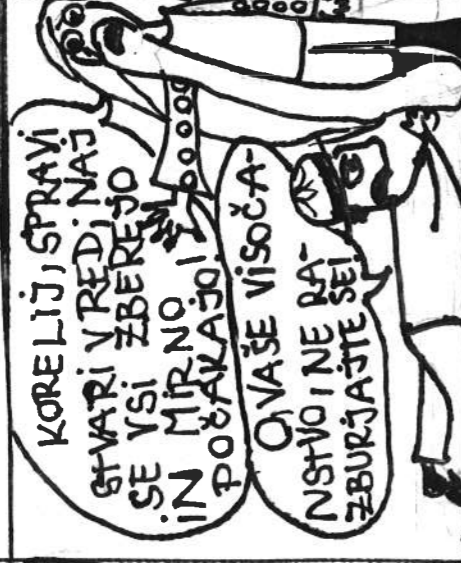 KORELIJ, SPRAVI
STVARI V RED, NAJ
SE VSI ZBEREJO
IN MIRNO
POČAKAJO!
O, VAŠE VISOČA-
NSTVO, NE RA-
ZBURJAJTE SE!